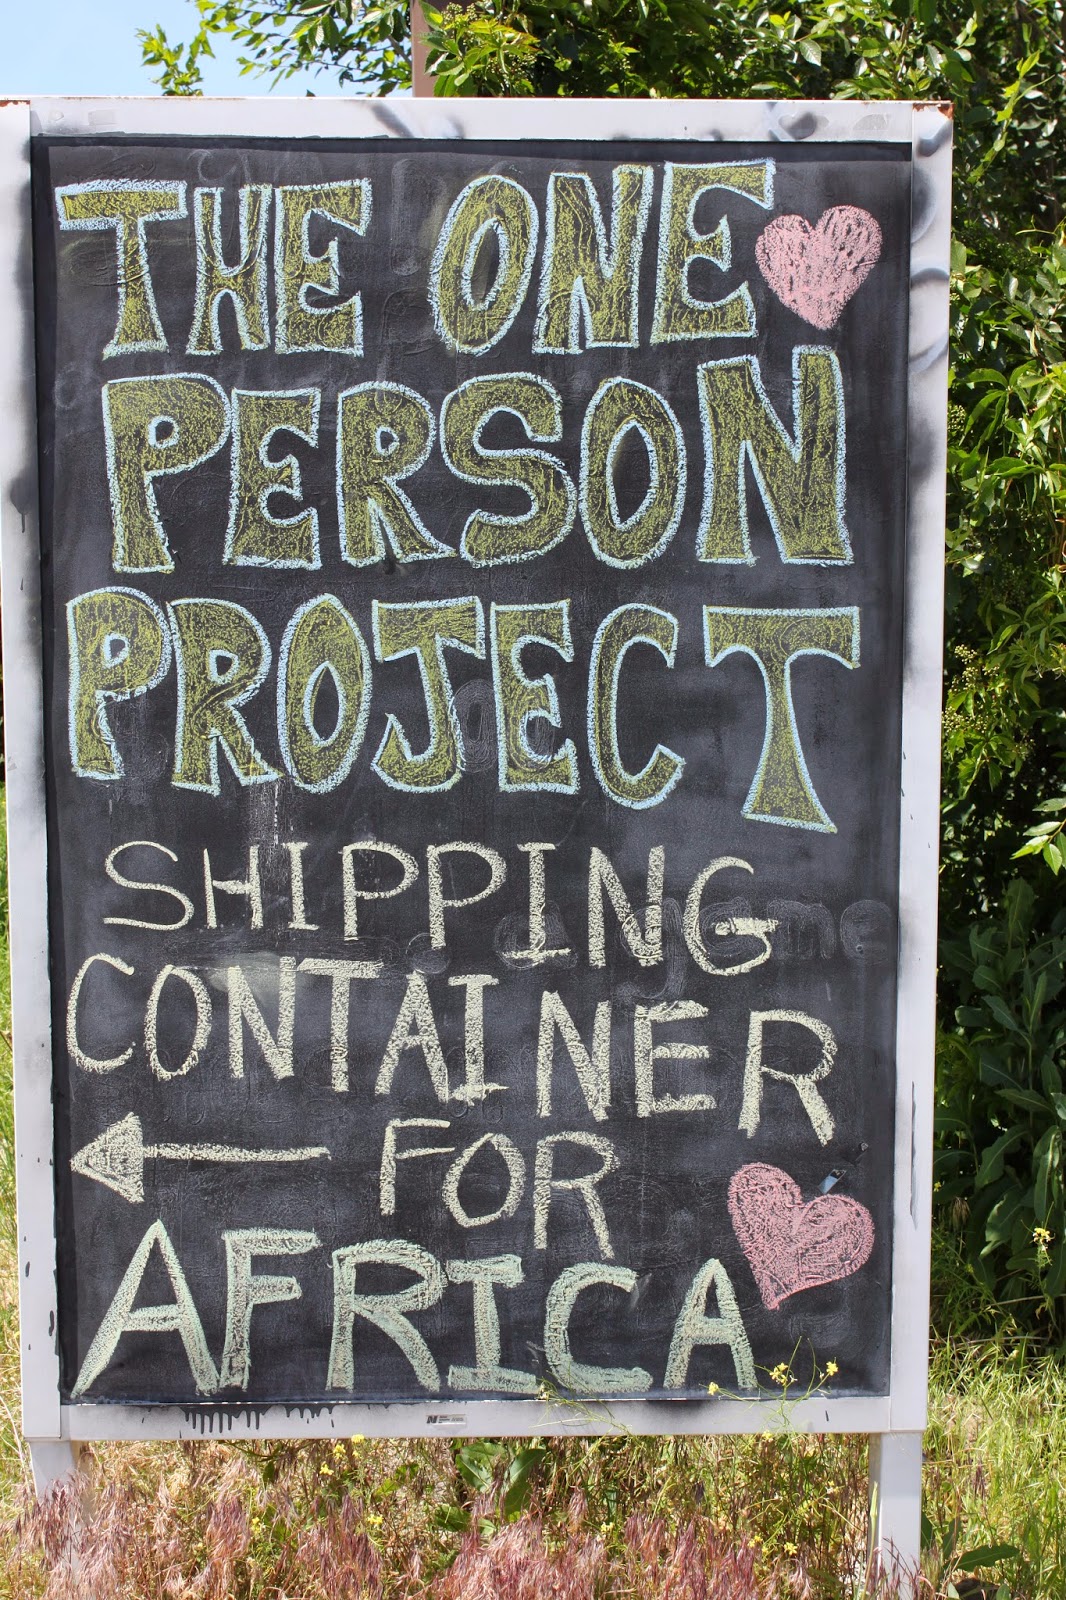 THE ONE
PERSON
PROJECT
SHIPPING
CONTAINER
FOR
AFRICA